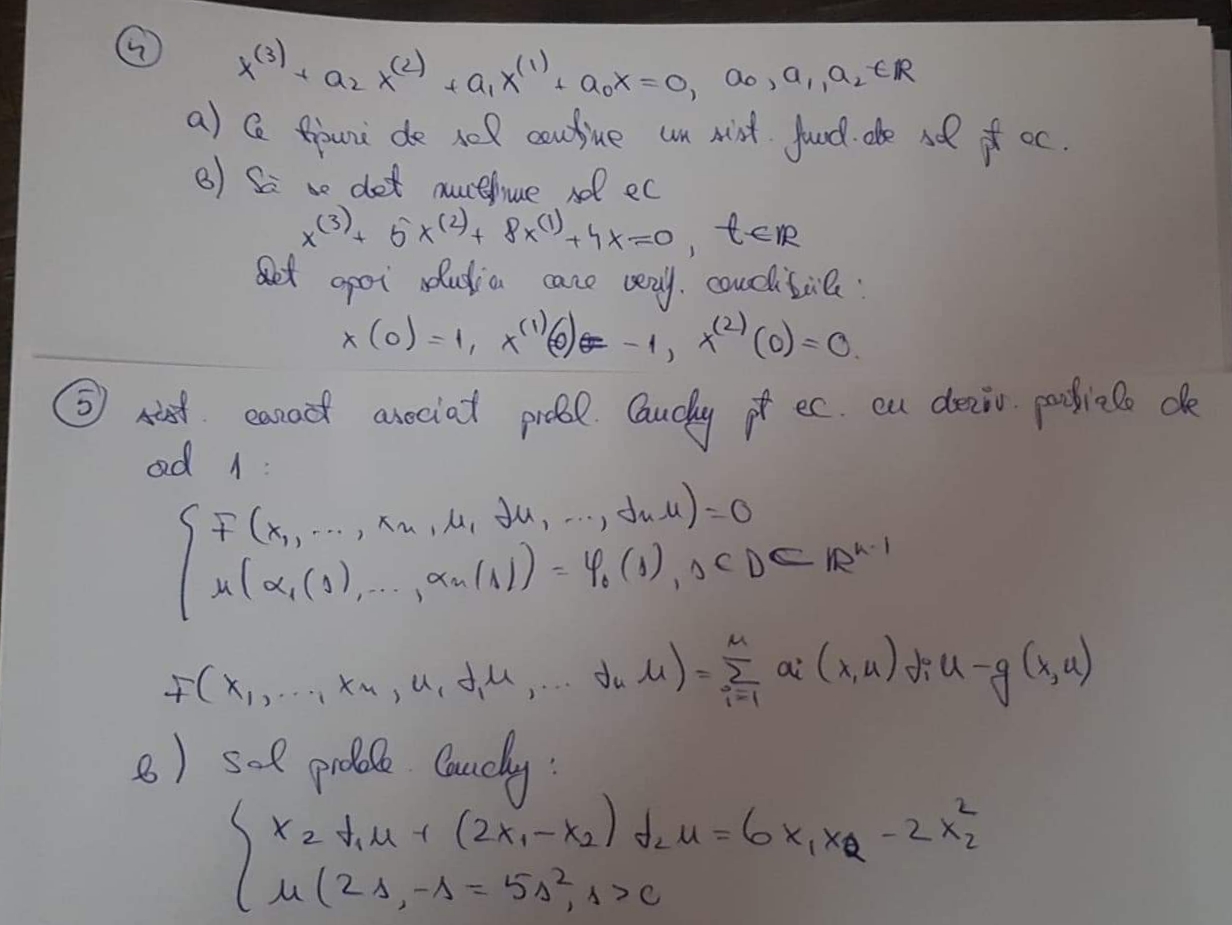 ④ x^(3) + a₂ x^(2) + a₁ x^(1) + a₀x = 0, a₀, a₁, a₂ ∈ ℝ
a) Ce tipuri de sol conține un sist. fund. de sol pt ec.
b) Să se det mulțime sol ec
x^(3) + 5x^(2) + 8x^(1) + 4x = 0, t ∈ ℝ
Det apoi soluția care verif. condițiile:
x(0) = 1, x^(1)(0) = -1, x^(2)(0) = 0.
⑤ sist. caract asociat probl. Cauchy pt ec. cu deriv. parțiale de
ord 1:
F(x₁, ..., xₙ, u, ∂u, ..., ∂ₙu) = 0
u(α₁(s), ..., αₙ(s)) = φ₀(s), s ⊂ D ⊂ ℝ^(n-1)
F(x₁, ..., xₙ, u, ∂₁u, ... ∂ₙu) = Σ_{i=1}^{n} ai (x,u) ∂iu - g(x,u)
b) Sol proble. Cauchy:
x₂ ∂₁u + (2x₁ - x₂) ∂₂u = 6x₁x₂ - 2x₂²
u(2s, -s = 5s², s > 0